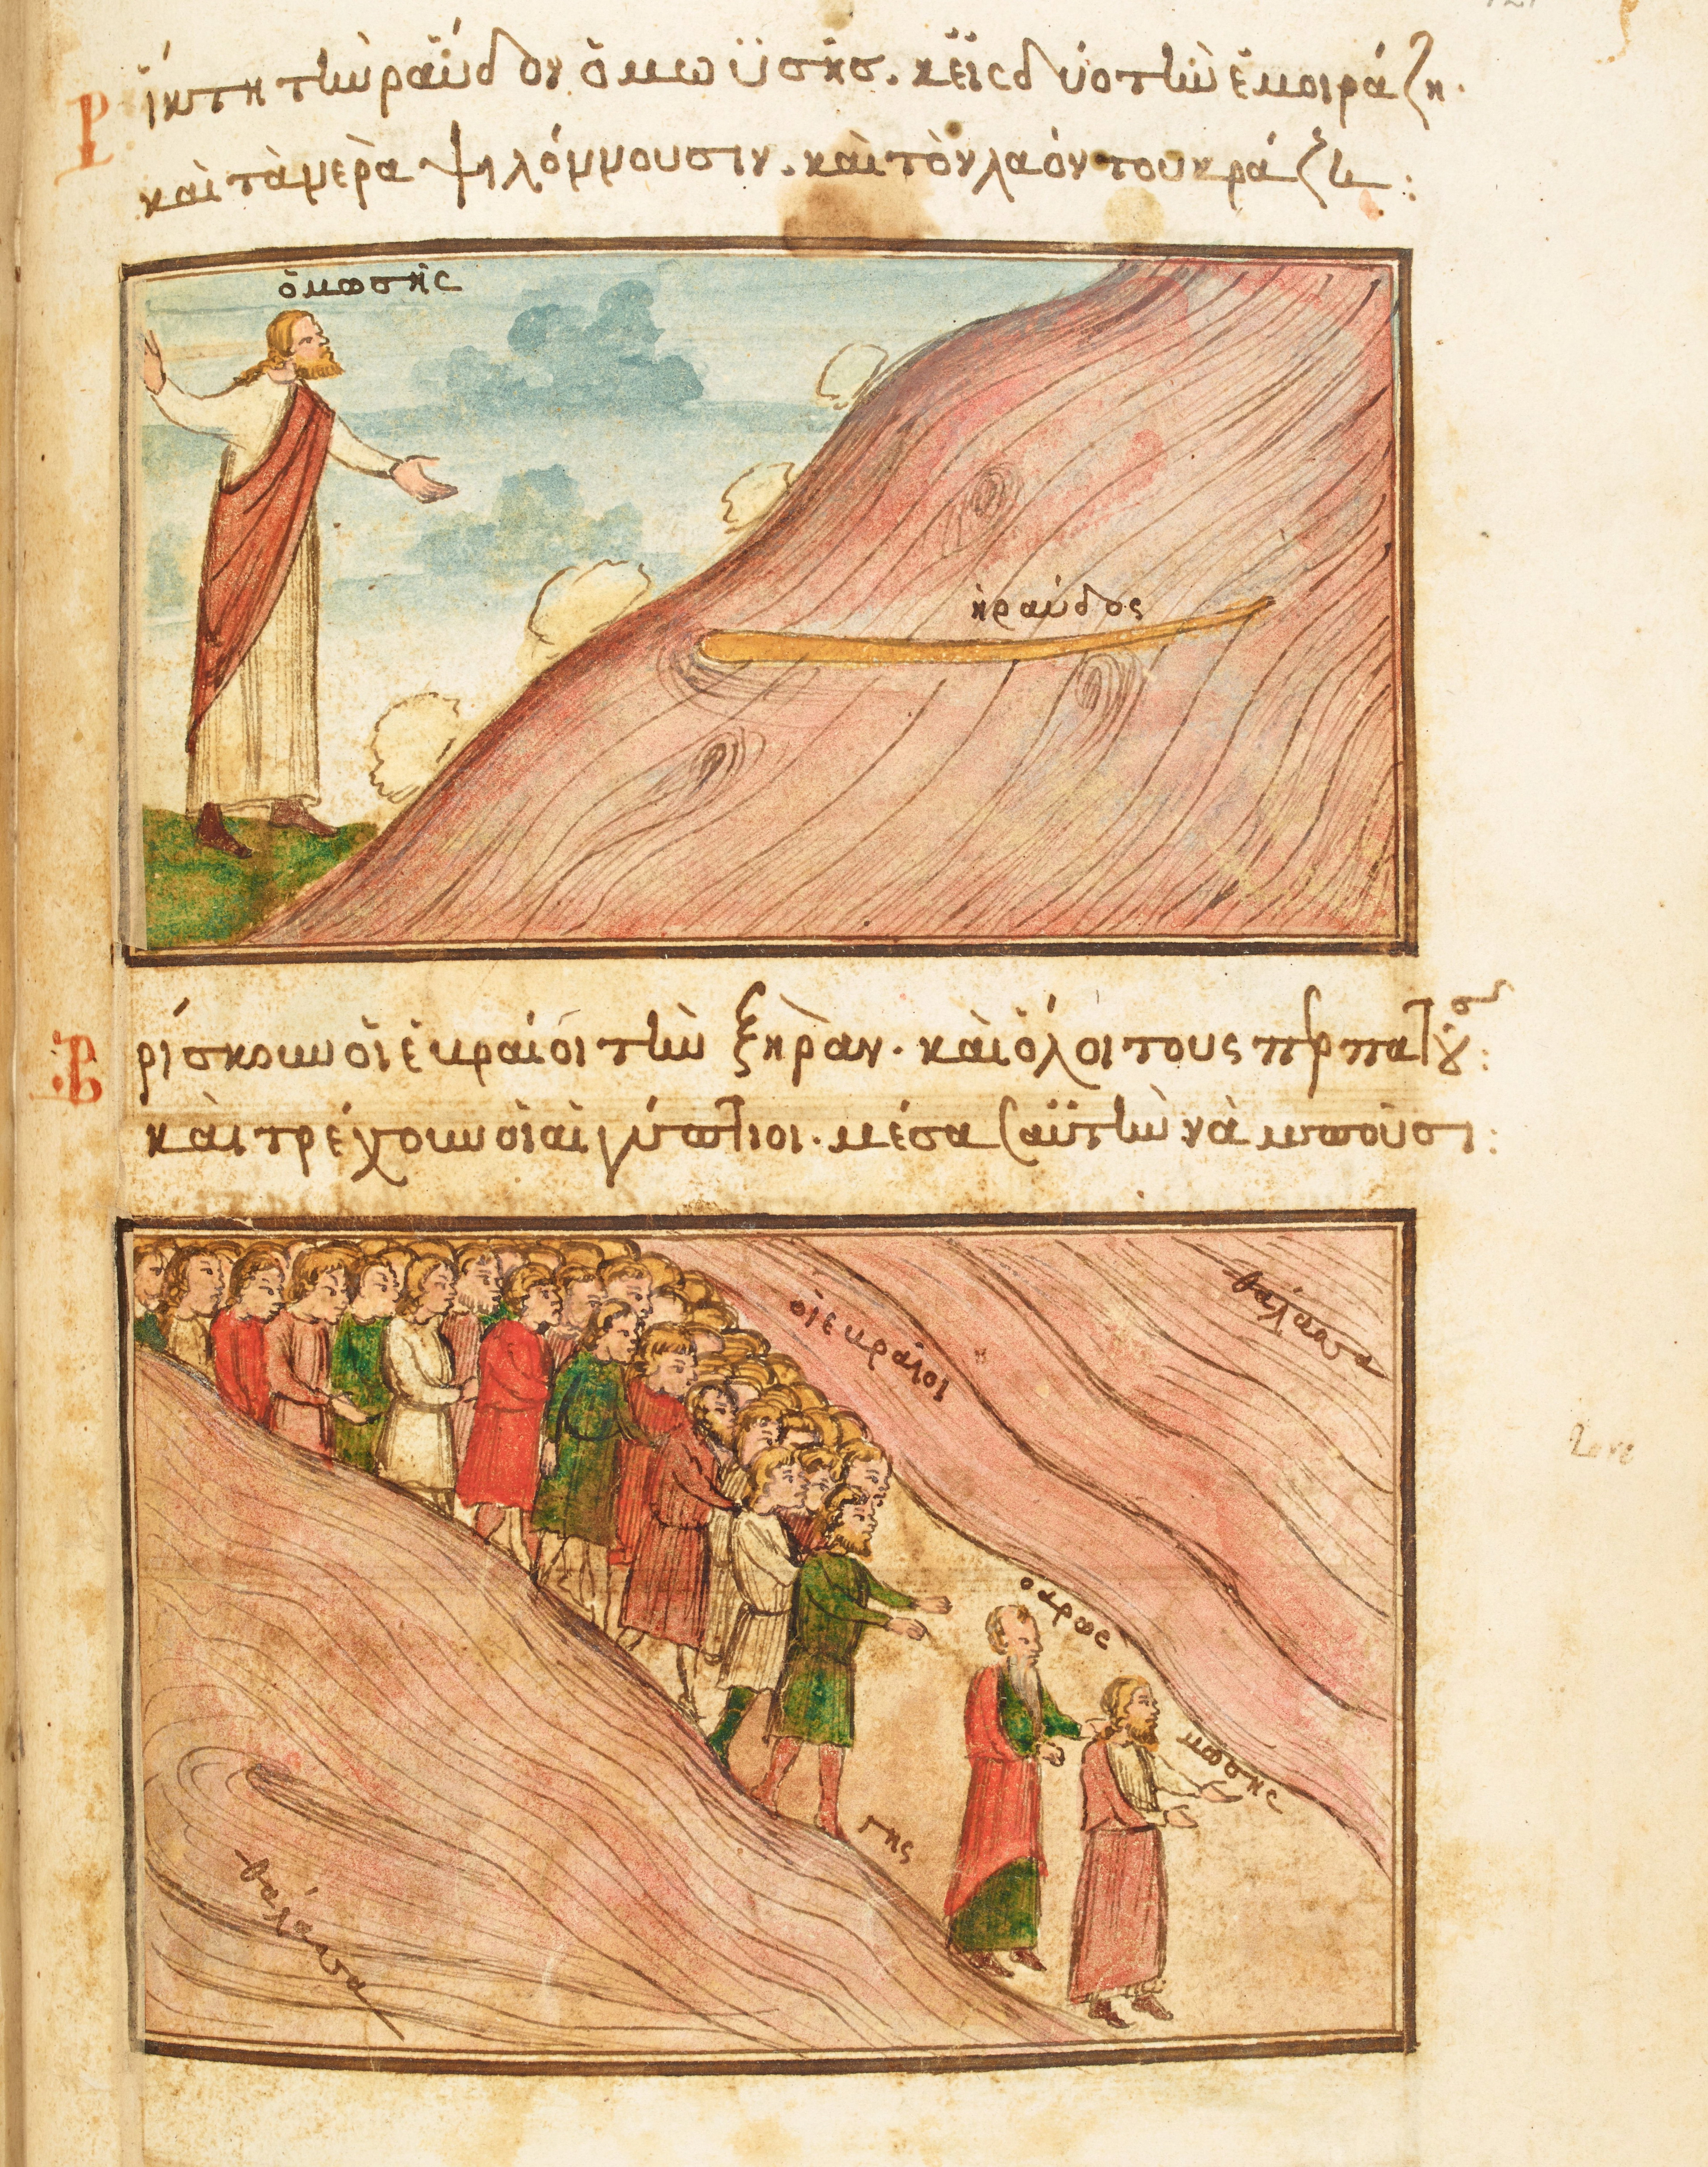 Ρίπτη τὴν ράὔδον ὁ μωϋσῆσ. κεἰς δύο τὴν ἐμοιράζη.
καὶ τὰ μερὰ ψιλόμμουσιν. καὶ τὸν λαόν του κράζει:
ὁ μωσῆς
ἡ ραύδος
Βρίσκουν οἱ ἑυραίοι τὴν ξηρὰν. καὶ ὅλοι τους περπατοῦσ:
καὶ τρέχουν οἱ αἰγύπτιοι. μέσα σ αὐτὴν νὰ μποῦσι:
οἱ ευραίοι
θάλασσα
ο αρως
μωσης
γης
θάλασσα